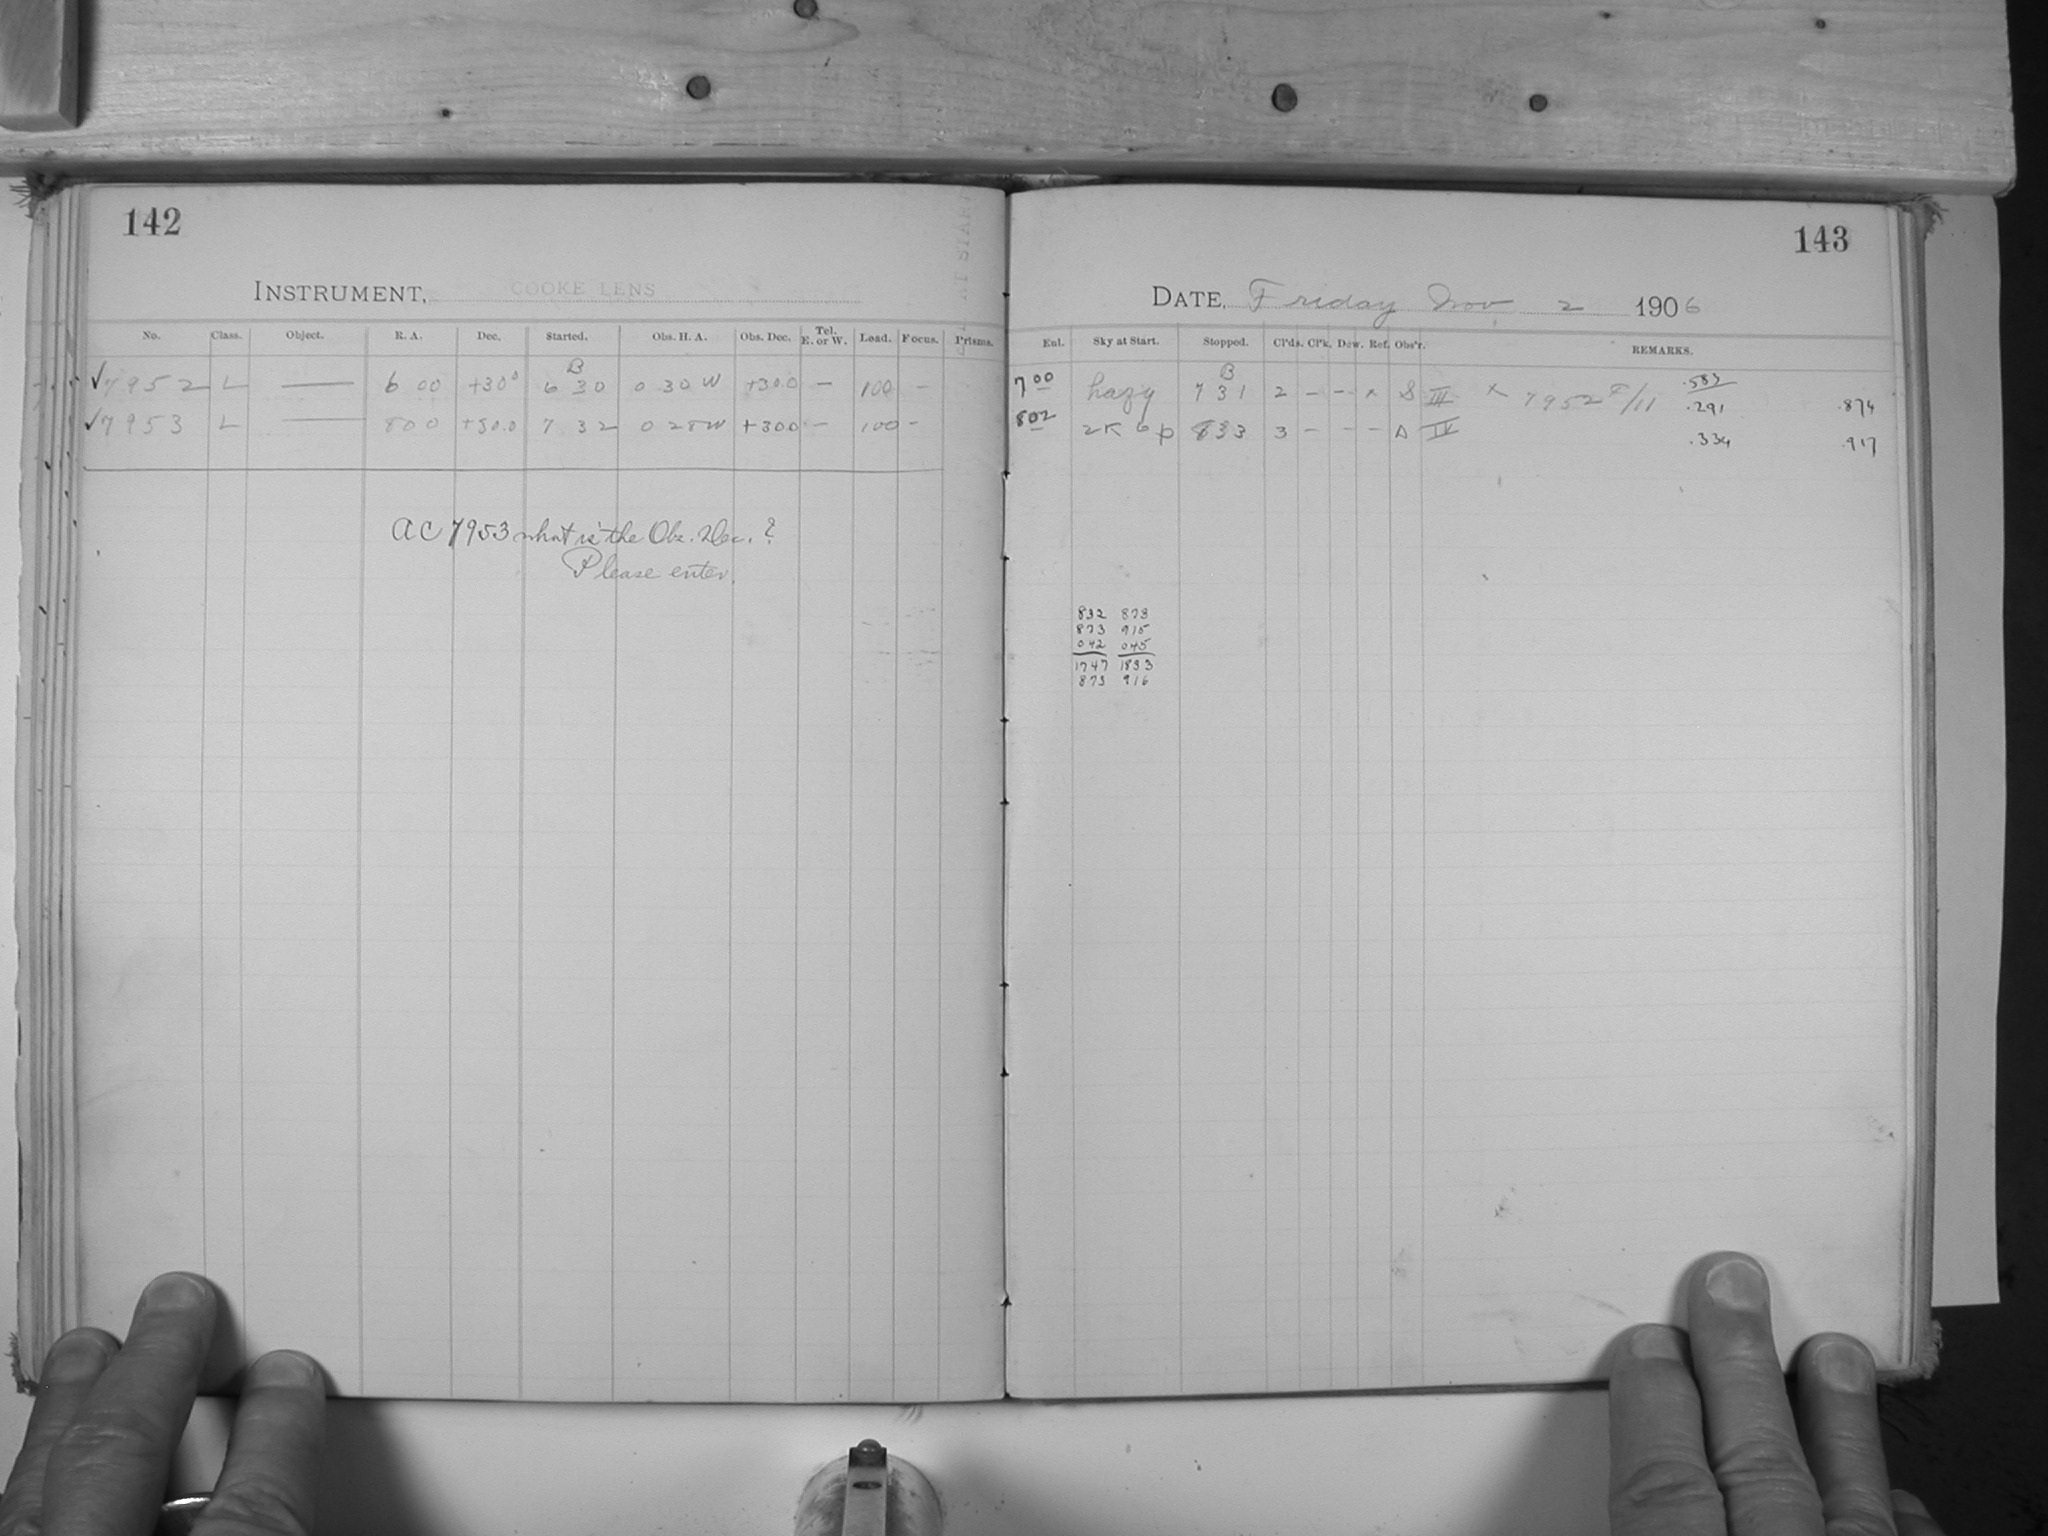 142
143
INSTRUMENT, COOKE LENS
DATE, Friday Nov 2 1906
No. Class. Object. R. A. Dec. Started. Obs. H. A. Obs. Dec. Tel. E. or W. Load. Focus. Prisms.
Ent. Sky at Start. Stopped. Cl'ds. Cl'k. Dew. Ref. Obs'r. REMARKS.
B
B
✓7952 L — 6 00 +30° 6 30 0 30 W +30.0 — 100 —
7 00 hazy 7 31 2 — — × S III × 7952 .583 .291 .874
✓7953 L — 8 00 +30.0 7 32 0 28 W +30.0 — 100 —
8 02 8 33 3 — — — IV .334 .917
AC 7953 what is the Obs. Dec. ?
Please enter.
832 873
873 915
042 045
1747 1833
873 916